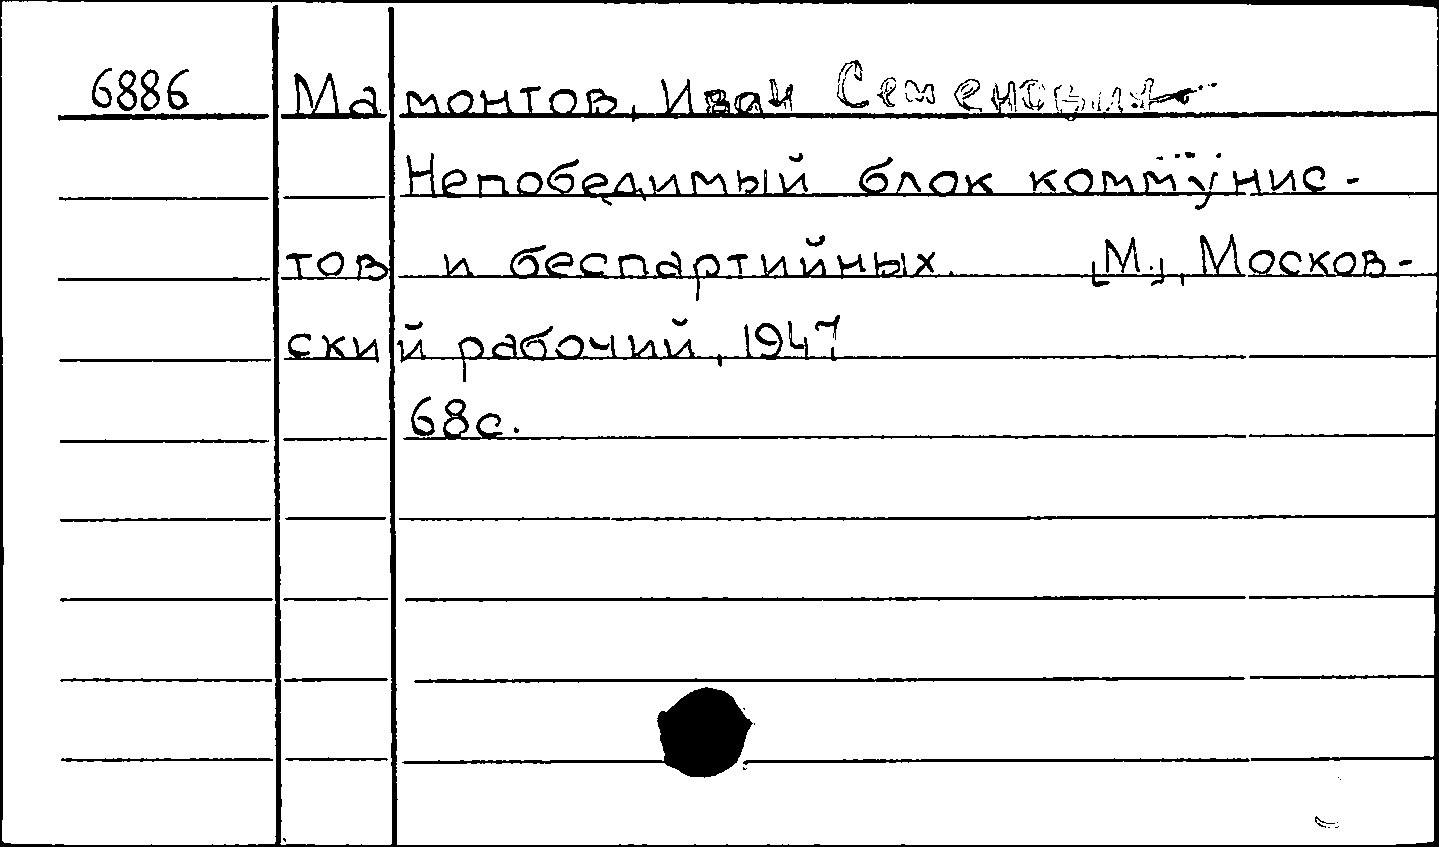 6886 Мамонтов, Иван Семенович
Непобедимый блок коммунис-
тов и беспартийных. [М.], Москов-
ский рабочий, 1947
68с.